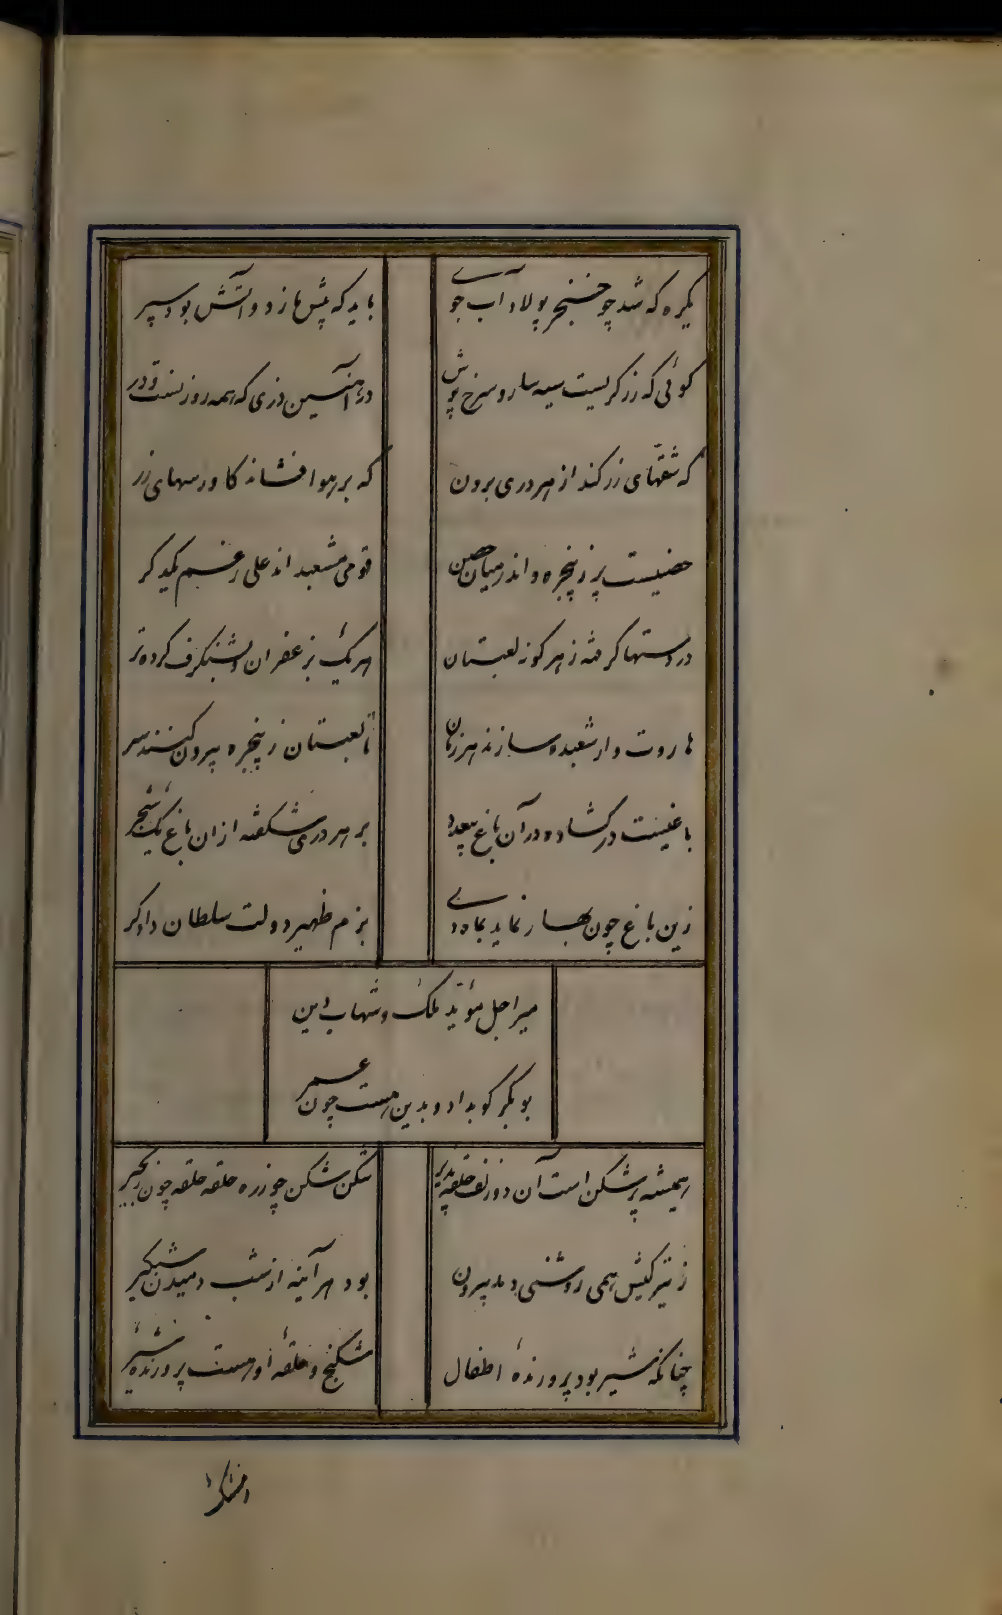 یکره که شد چو خنجر پولاد آب جوی
باید که پیش ما زد و آتش بود سپر
کوئی که زرکریست سیه سار و سرخ پوش
در آهنین دزی که همه روز
که شقهای زر کند از هر دری برون
که بر هوا فشاند کاورسهای زر
حصنیست پر ز پنجره و اندر میان حصن
قومی مشعبد اند علی رغم یکدکر
در دستها کرفته ز هر کونه لعبتان
هر یک بزعفران و شنکرف کرده تر
هاروت وار شعبده سازند هر زمان
تا لعبتان ز پنجره بیرون کنند سر
باغیست در کشاده در آن باغ بیعدد
بر هر دری شکفته ازان باغ یک شجر
زین باغ چون بهار نماید بماه دی
بزم ظهیر دولت سلطان دادکر
میر اجل مؤید ملک و شهاب دین
بوبکر کو بداد و بدین هست چون عمر
همیشه پر شکن است آن دو زلف حلقه پذیر
شکن شکن چو زره حلقه حلقه چون زنجیر
ز تیرکیش همی روشنی دمد بیرون
بود هر آینه از شب دمیدن شبکیر
چنانکه شیر بود پرورندهٔ اطفال
شکنج و حلقهٔ او هست پرورندهٔ شیر